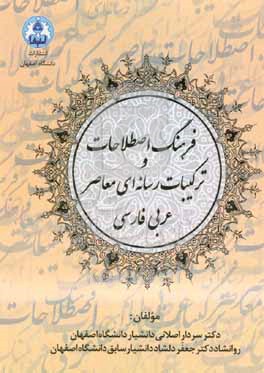 انتشارات
دانشگاه اصفهان
فرهنگ اصطلاحات
و
ترکیبات رسانه‌ای معاصر
عربی فارسی
مؤلفان:
دکتر سردار اصلانی دانشیار دانشگاه اصفهان
روانشاد دکتر جعفر دلشاد دانشیار سابق دانشگاه اصفهان